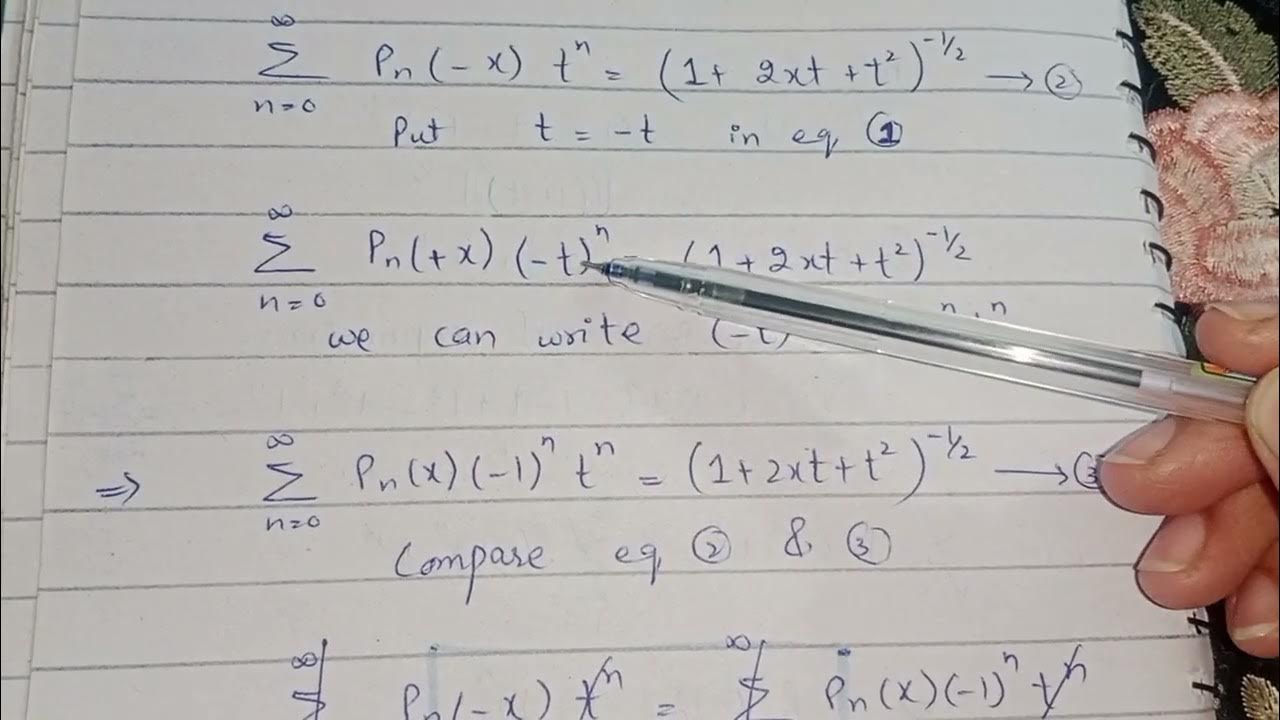 ∞
∑ Pn(-x) t^n = (1+ 2xt +t²)^-1/2 → ②
n=0
Put t = -t in eq ①
∞
∑ Pn(+x) (-t)^n = (1+2xt+t²)^-1/2
n=0
we can write (-t) n t n
∞
⇒ ∑ Pn(x)(-1)^n t^n = (1+2xt+t²)^-1/2 → ③
n=0
Compare eq ② & ③
∞ ∞
∑ Pn(-x) t^n = ∑ Pn(x)(-1)^n t^n